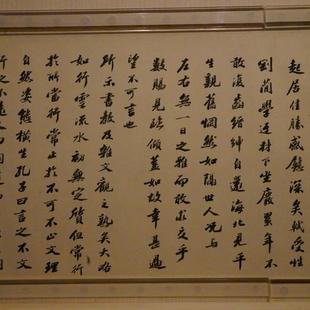 起居佳勝感慰深矣軾受性
剛簡學迂材下坐廢累年不
敢復齒縉紳自還海北見平
生親舊惘然如隔世人況與
左右無一日之雅而敢求交乎
數賜見臨傾蓋如故幸甚過
望不可言也
所示書教及雜文觀之熟矣大略
如行雲流水初無定質但常行
於所當行常止於不可不止文理
自然姿態橫生孔子曰言之不文
行之不遠又